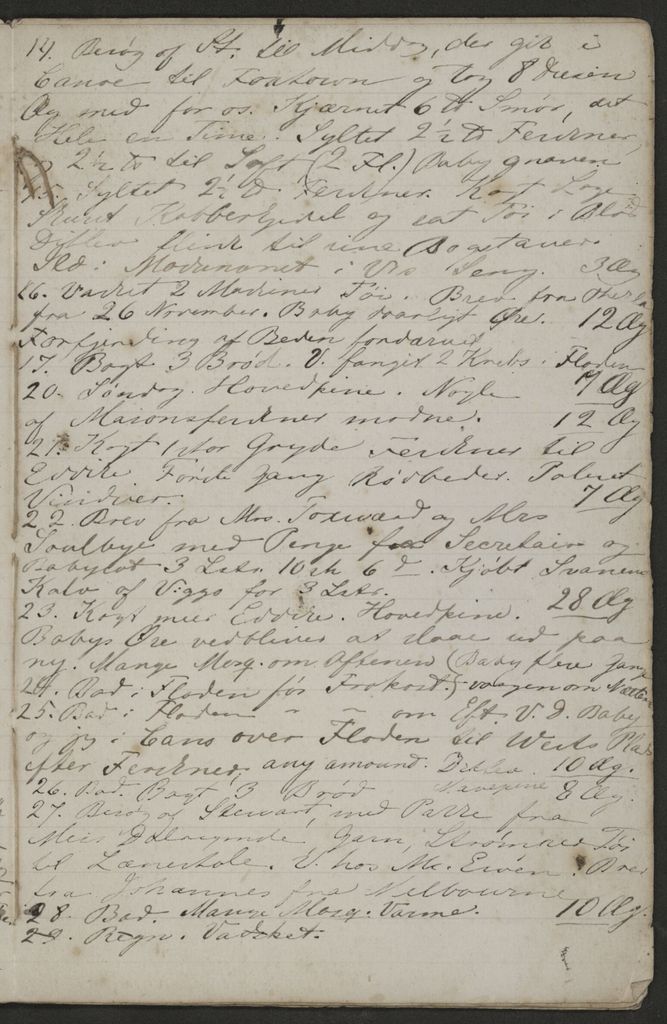 14. Besøg af St. til Middag, der gik i
Canoe til Foxtown og tog 8 dusin
Æg med for os. Kjærnet 6 ℔ Smør, det
Hele en Time. Syltet 2½ ℔ Ferskner,
2½ ℔ til Saft (2 Fl.) Baby gnaven
Syltet 2½ ℔ Ferskner. Kogt
Skuret Kobberkjedel og sat Tøi i Blød
Ditlev flink til sine Bogstaver.
Ild i i V's Seng. 3 Æg
16. Vasket 2 Maskiner Tøi. Brev fra
fra 26 November. Baby daarligt Øre. 12 Æg
af Beden
17. Bagt 3 Brød. V. fanget 2 Krebs i Floden
20. Søndag. Hovedpine. Nogle 7 Æg
af Maionsferskner modne. 12 Æg
21. Kogt 1 stor Gryde Ferskner til
Eddike Første Gang Rødbeder. Poleret
Vinduer. 7 Æg
22. Brev fra Mrs. Toxward og Mrs
Soulbye med Penge fra Secretair og
Babytøi 3 Lstr. 10 sh 6 d. Kjøbt Svanens
Kalv af Viggo for 3 Lstr.
23. Kogt mere Eddike. Hovedpine. 28 Æg
Babys Øre vedbliver at slaae ud paa
ny. Mange Mosq. om Aftenen (Baby flere Gange
24. Bad i Floden før Frokost.) vaagen om Natten
25. Bad i Floden " " om Eft. V. D. Baby
og jeg i Cano over Floden til Plads
efter Ferskner, any amound. Ditlev 10 Æg.
26. Bad. Bagt 3 Brød Mavepine 8 Æg.
27. Besøg af Stewart, med Pakke fra
Miss Dalrymple Garn, Strømper Tøi
til Lænestole. V. hos Mc. Ewen. Brev
fra Johannes fra Melbourne
28. Bad. Mange Mosq. Varme. 10 Æg.
29. Regn. Vadsket.